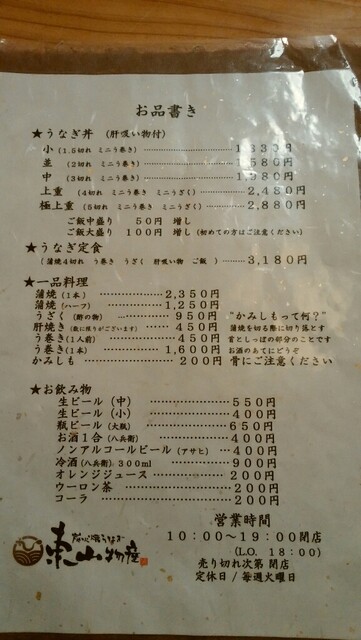 お品書き
★うなぎ丼 (肝吸い物付)
小 (1.5切れ ミニう巻き) 1,330円
並 (2切れ ミニう巻き) 1,580円
中 (3切れ ミニう巻き) 1,980円
上重 (4切れ ミニう巻き ミニうざく) 2,480円
極上重 (5切れ ミニう巻き ミニうざく) 2,880円
ご飯中盛り 50円 増し
ご飯大盛り 100円 増し (初めての方はご注意ください)
★うなぎ定食
(蒲焼4切れ う巻き うざく 肝吸い物 ご飯 ) 3,180円
★一品料理
蒲焼 (1本) 2,350円
蒲焼 (ハーフ) 1,250円
うざく (酢の物) 950円 "かみしもって何?"
肝焼き (数に限りがございます) 450円 蒲焼を切る際に切り落とす
う巻き(1人前) 450円 首としっぽの部分のことです
う巻き(1本) 1,600円 お酒のあてにどうぞ
かみしも 200円 骨にご注意ください
★お飲み物
生ビール (中) 550円
生ビール (小) 400円
瓶ビール (大瓶) 650円
お酒1合 (八兵衛) 400円
ノンアルコールビール (アサヒ) 400円
冷酒 (八兵衛) 300ml 900円
オレンジジュース 200円
ウーロン茶 200円
コーラ 200円
東山物産
営業時間
10:00~19:00閉店
(L.O. 18:00)
売り切れ次第 閉店
定休日/毎週火曜日